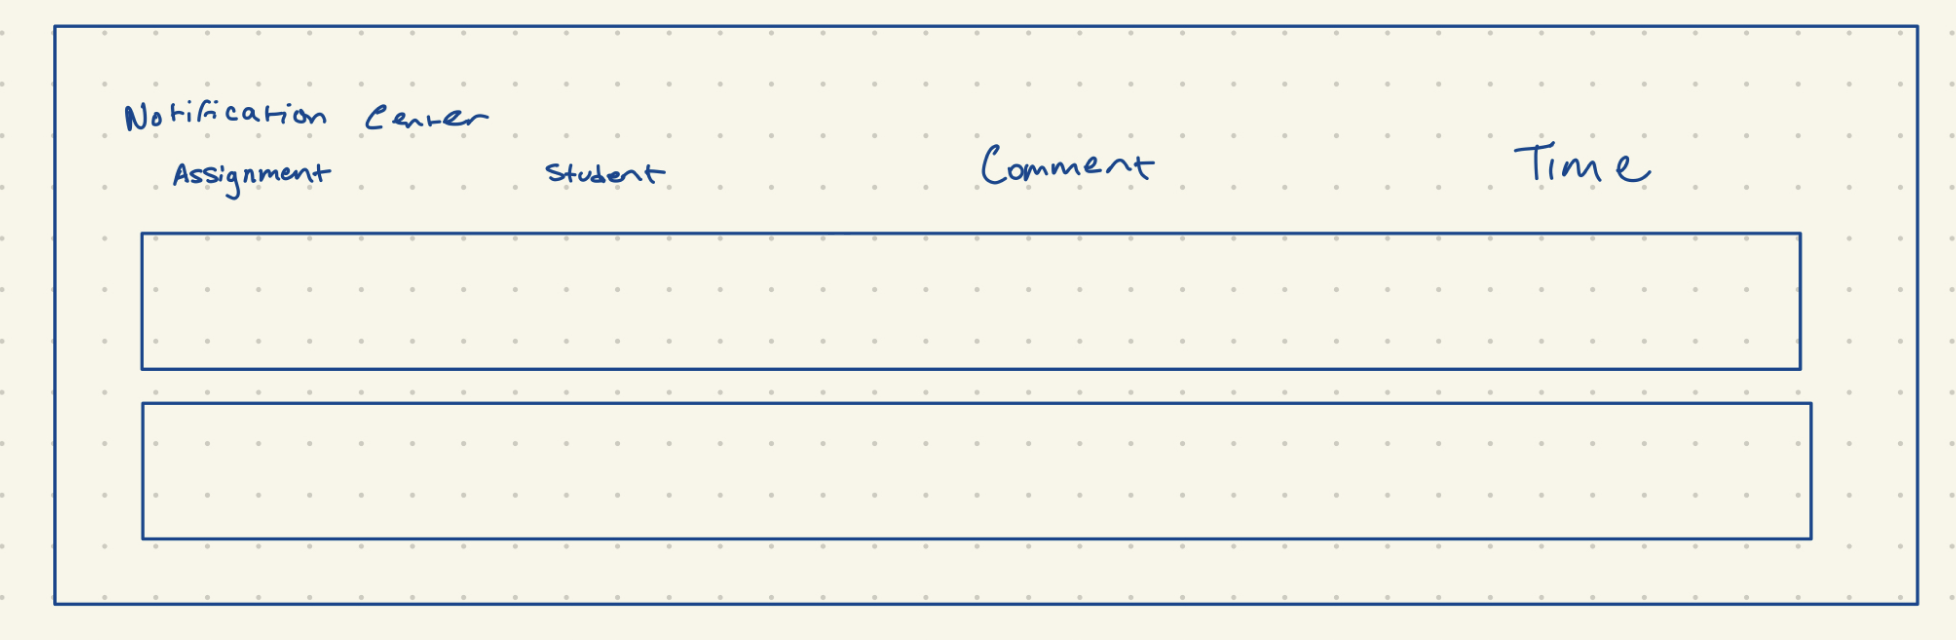 Notification Center
Assignment Student Comment Time